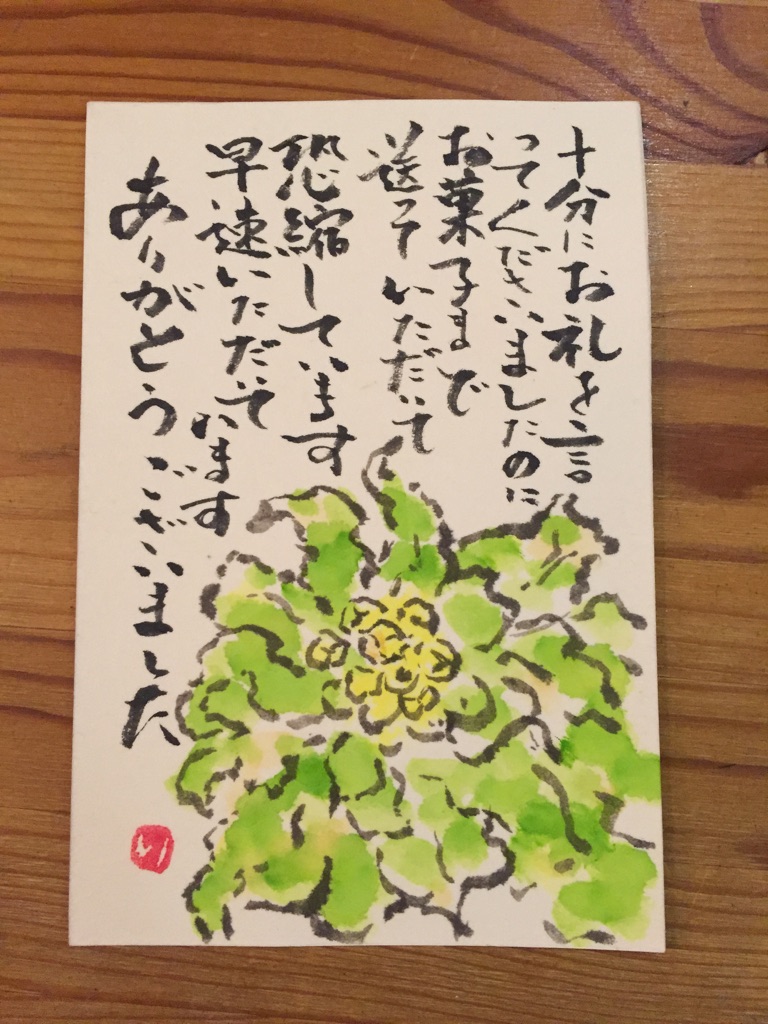 十分にお礼を言
ってくださいましたのに
お菓子まで
送っていただいて
恐縮しています
早速いただいて
います
ありがとうございました
い